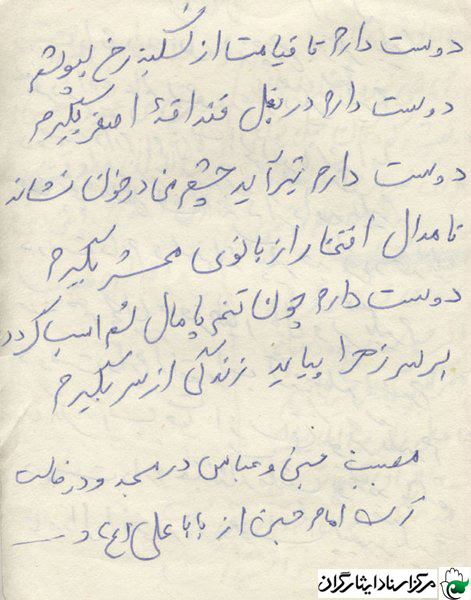 دوست دارم تا قیامت از سکینه رخ بپوشم
دوست دارم در بغل قنداقهٔ اصغر بگیرم
دوست دارم تیر آید چشم من در خون نشاند
تا مدال افتخار از بانوی محشر بگیرم
دوست دارم چون تنم پامال سُم اسب گردد
بر سر زهرا بیاید زندگی از سر بگیرم
مصیبت حسین و عباس در مسجد و در
امام حسین از بابا علی (ع) و
مرکز اسناد ایثارگران